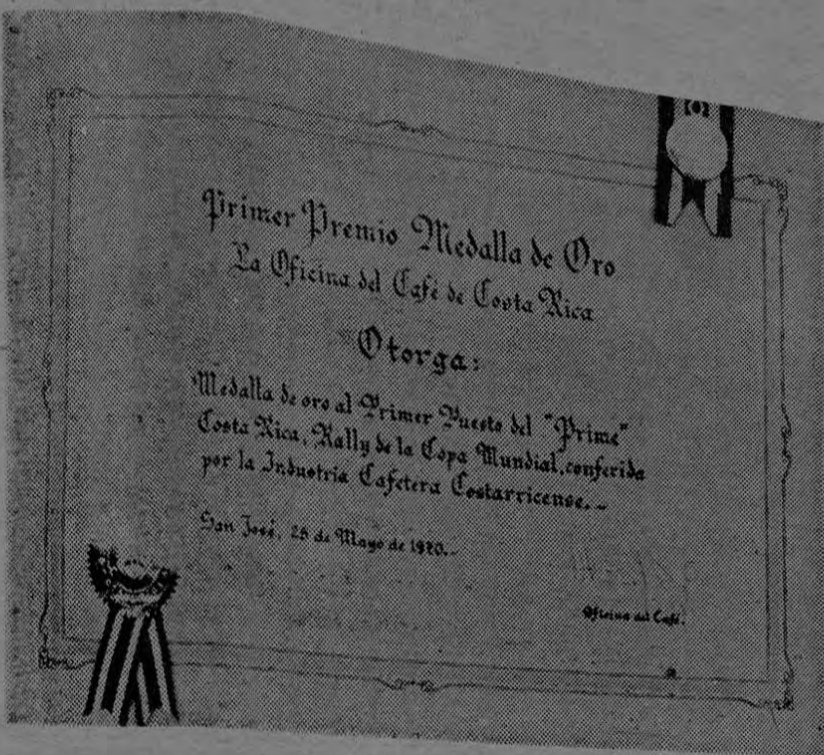 Primer Premio Medalla de Oro
La Oficina del Café de Costa Rica
Otorga:
Medalla de oro al Primer Puesto del "Prime"
Costa Rica, Rally de la Copa Mundial, conferida
por la Industria Cafetera Costarricense.-
San José, 25 de Mayo de 1970.-
Oficina del Café.